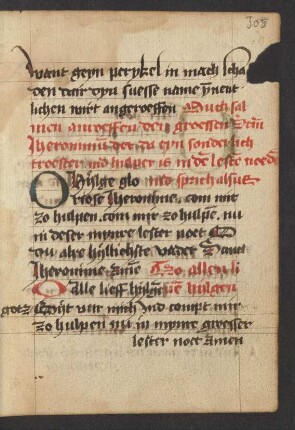 305
want geyn perykel in mach scha
den dair dyn suesse name ynnent
lichen wirt angeroeffen Auch sal
men anroeffen den groessen Sent
Iheronimū der da eyn sonderlich
troester ind hulper is in der lester noed
O hilge glo ind sprich alsus
riose Iheronyme, com mir
zo hulpen, com mir zo hulpe, nu
in deser mynre lester noet O
du alre hillichste vader Sanct
Iheronime Amē Azo allen li
O alle lieff hilgen ūē hilgen
gotz Bijt vur mich Ind coympt mir
zo hulpen nu in mynre groesser
lester noet Amen